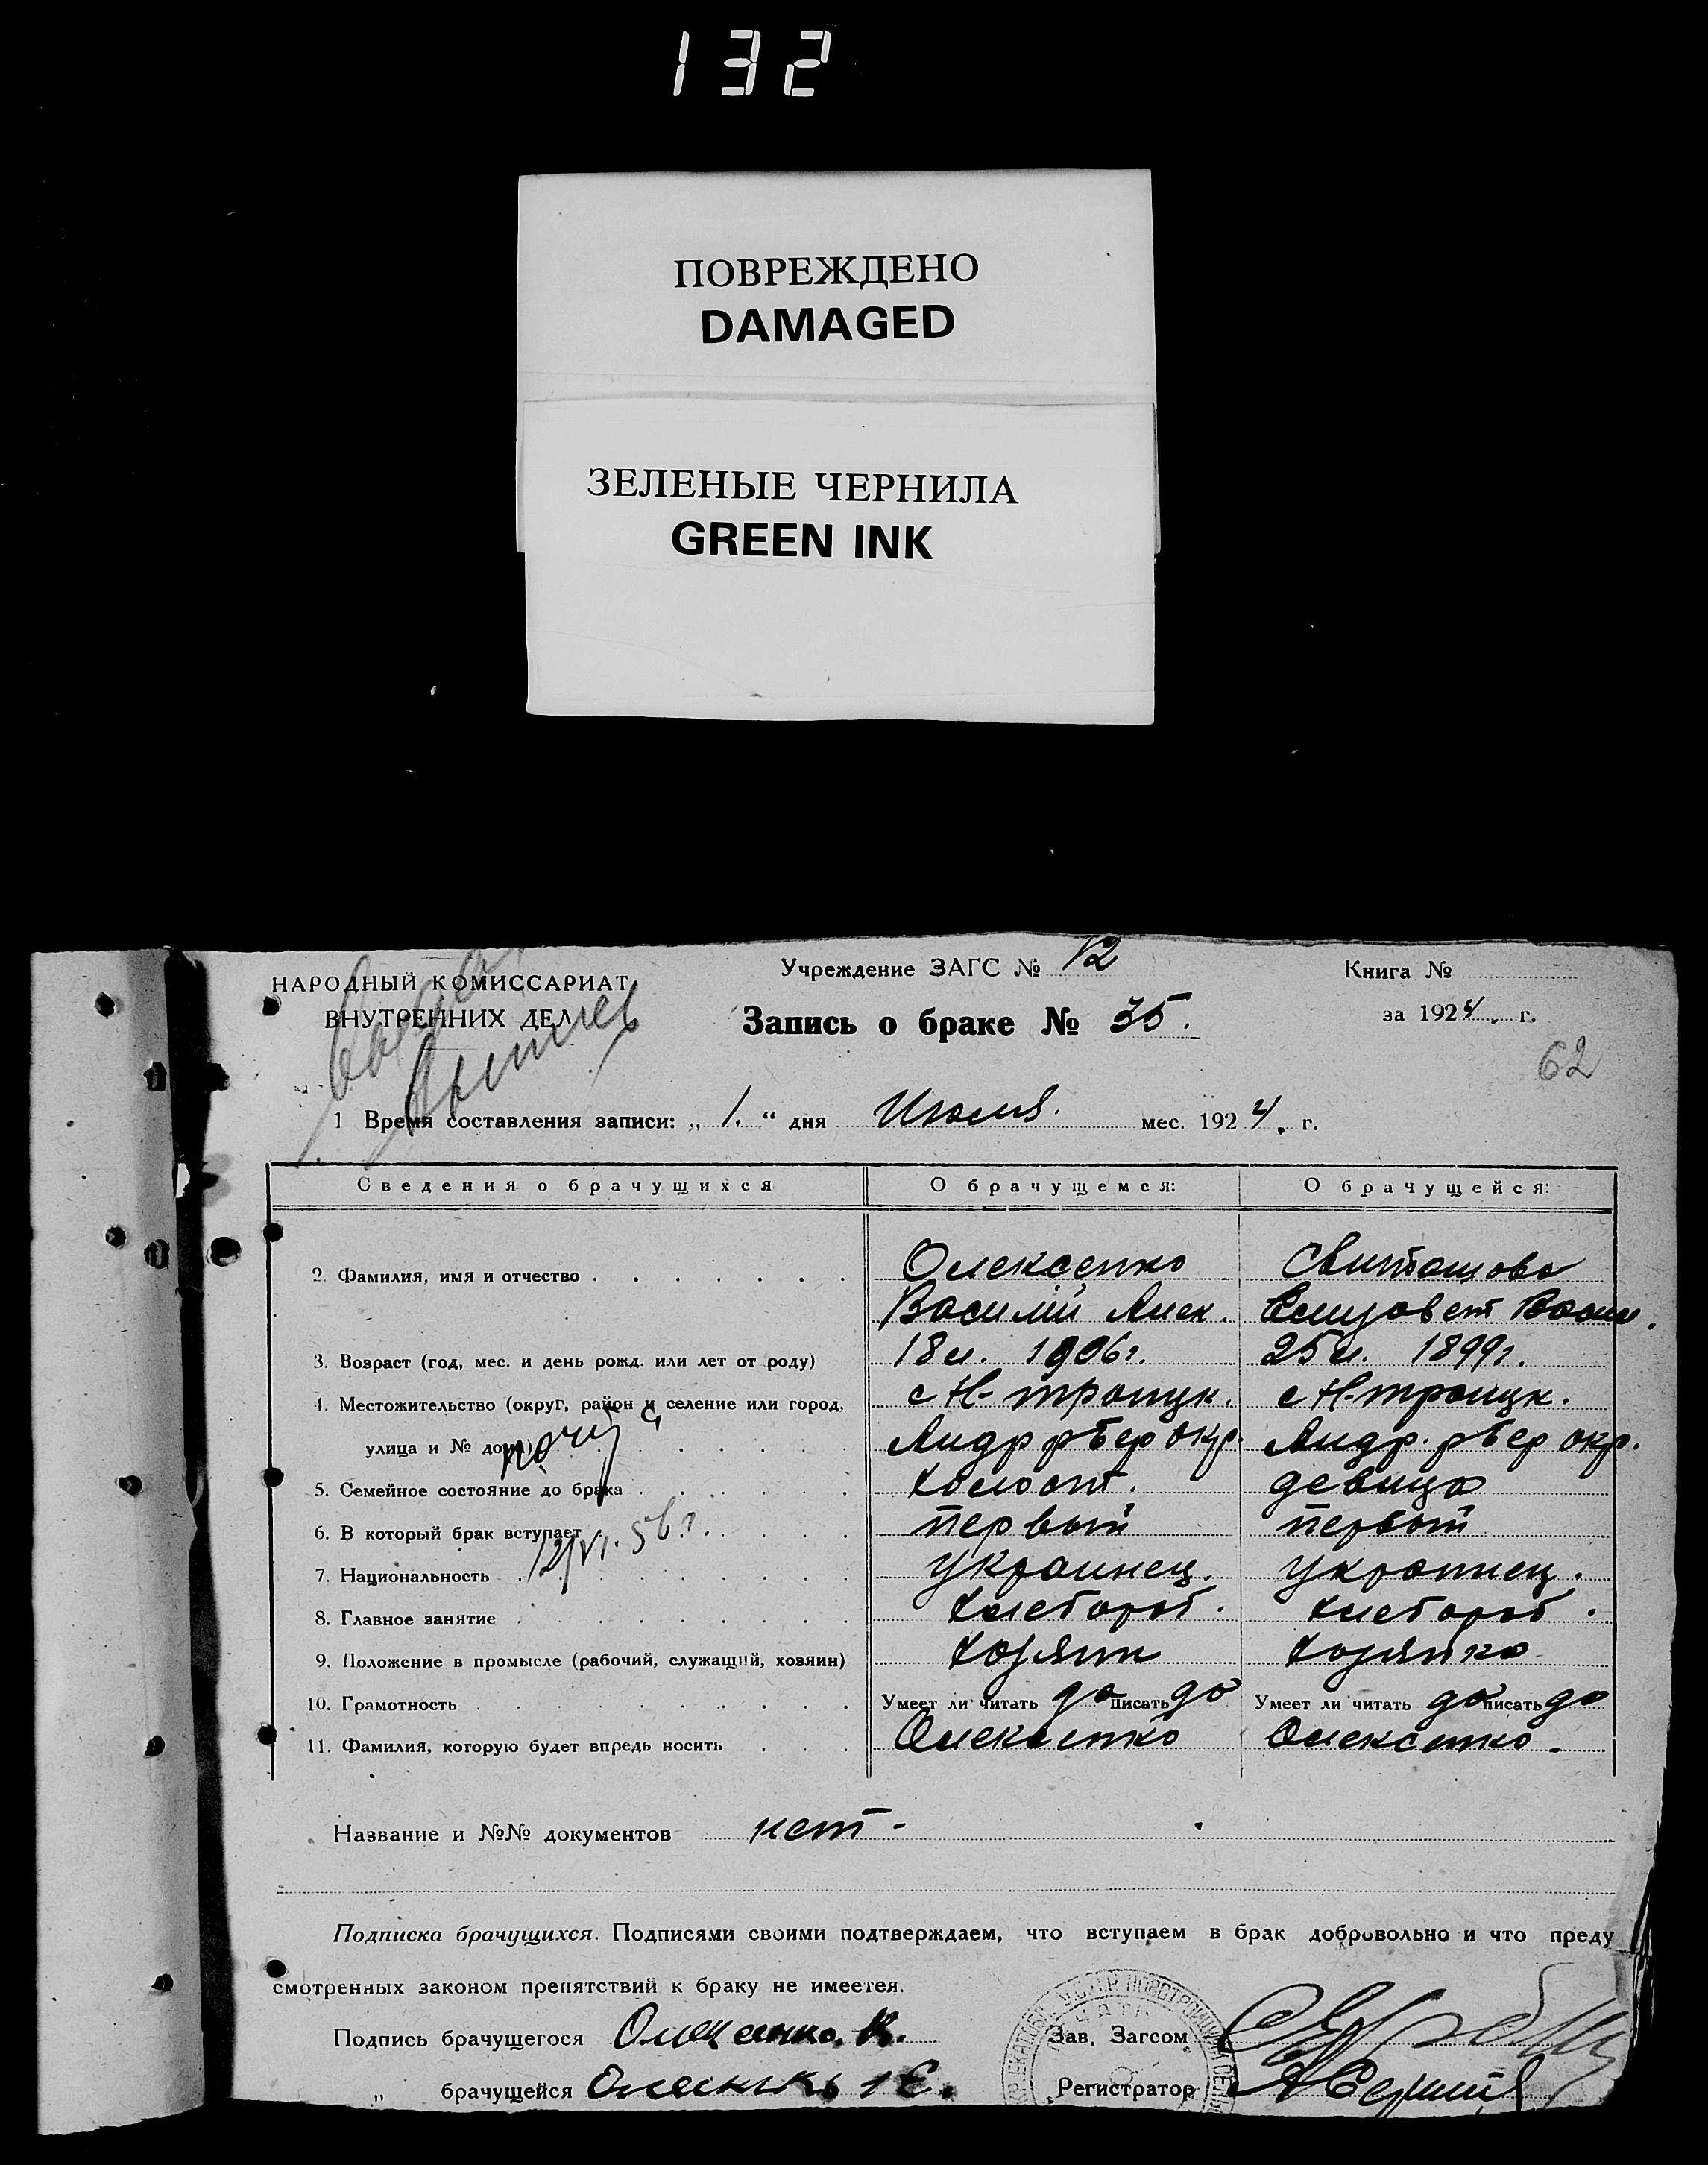 132
ПОВРЕЖДЕНО
DAMAGED
ЗЕЛЕНЫЕ ЧЕРНИЛА
GREEN INK
НАРОДНЫЙ КОМИССАРИАТ
ВНУТРЕННИХ ДЕЛ
Учреждение ЗАГС № 12
Книга №
Запись о браке № 35.
за 1924. г.
62
1 Время составления записи: „ 1. “ дня Июля мес. 1924. г.
Сведения о брачущихся О брачущемся: О брачущейся:
2. Фамилия, имя и отчество Олексенко
Василий Алек. Елизовет Васил.
3. Возраст (год, мес. и день рожд. или лет от роду) 18 л. 1906 г. 25 л. 1899 г.
4. Местожительство (округ, район и селение или город, с Н-троицк. с Н-троицк.
улица и № дома) Андр рБер окр. Андр. рБер окр.
5. Семейное состояние до брака холост. девица
6. В который брак вступает первый первый
12/VI. 56 г.
7. Национальность украинец. украинец.
8. Главное занятие хлебороб. хлебороб.
9. Положение в промысле (рабочий, служащий, хозяин) хозяин хозяйка
10. Грамотность Умеет ли читать да писать да Умеет ли читать да писать да
11. Фамилия, которую будет впредь носить Олексенко Олексенко.
Название и №№ документов нет -
Подписка брачущихся. Подписями своими подтверждаем, что вступаем в брак добровольно и что преду
смотренных законом препятствий к браку не имеетея.
Подпись брачущегося Зав. Загсом
„ брачущейся Регистратор